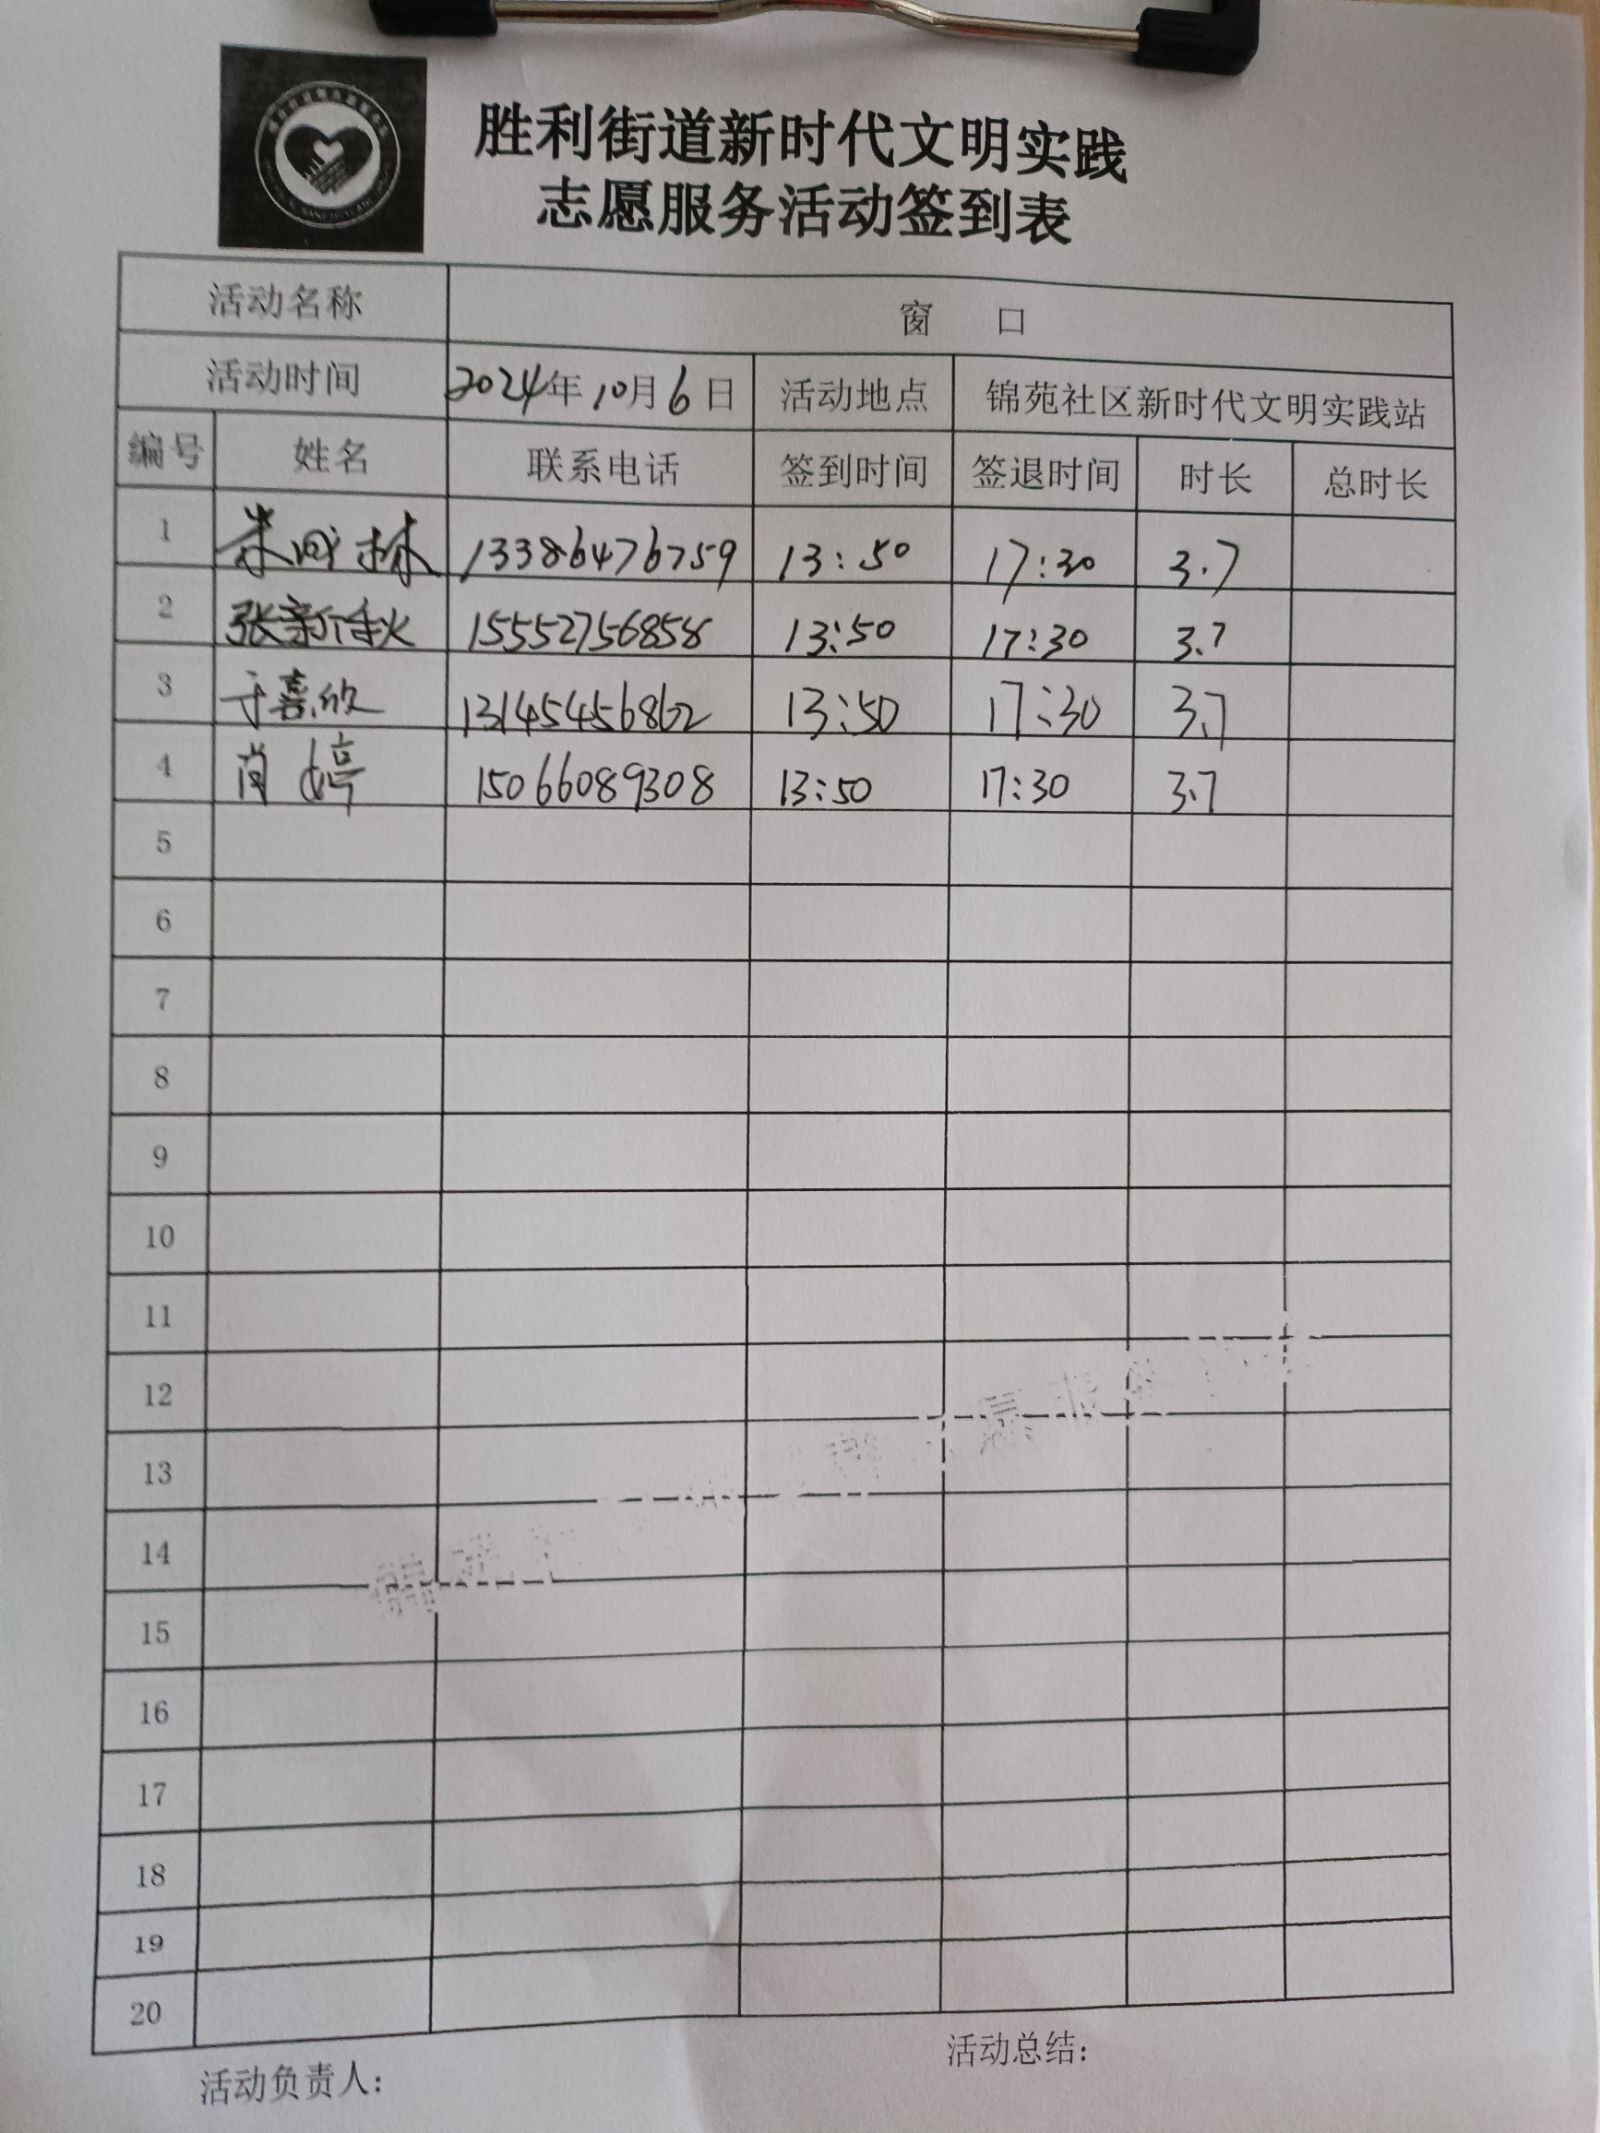 胜利街道新时代文明实践
志愿服务活动签到表
活动名称 窗 口
活动时间 2024年10月6日 活动地点 锦苑社区新时代文明实践站
编号 姓名 联系电话 签到时间 签退时间 时长 总时长
1 林 13386476759 13:50 17:30 3.7
2 张新秋 15552756858 13:50 17:30 3.7
3 于喜欣 13145456862 13:50 17:30 3.7
4 肖婷 15066089308 13:50 17:30 3.7
5
6
7
8
9
10
11
12
13
14
15
16
17
18
19
20
活动负责人: 活动总结: